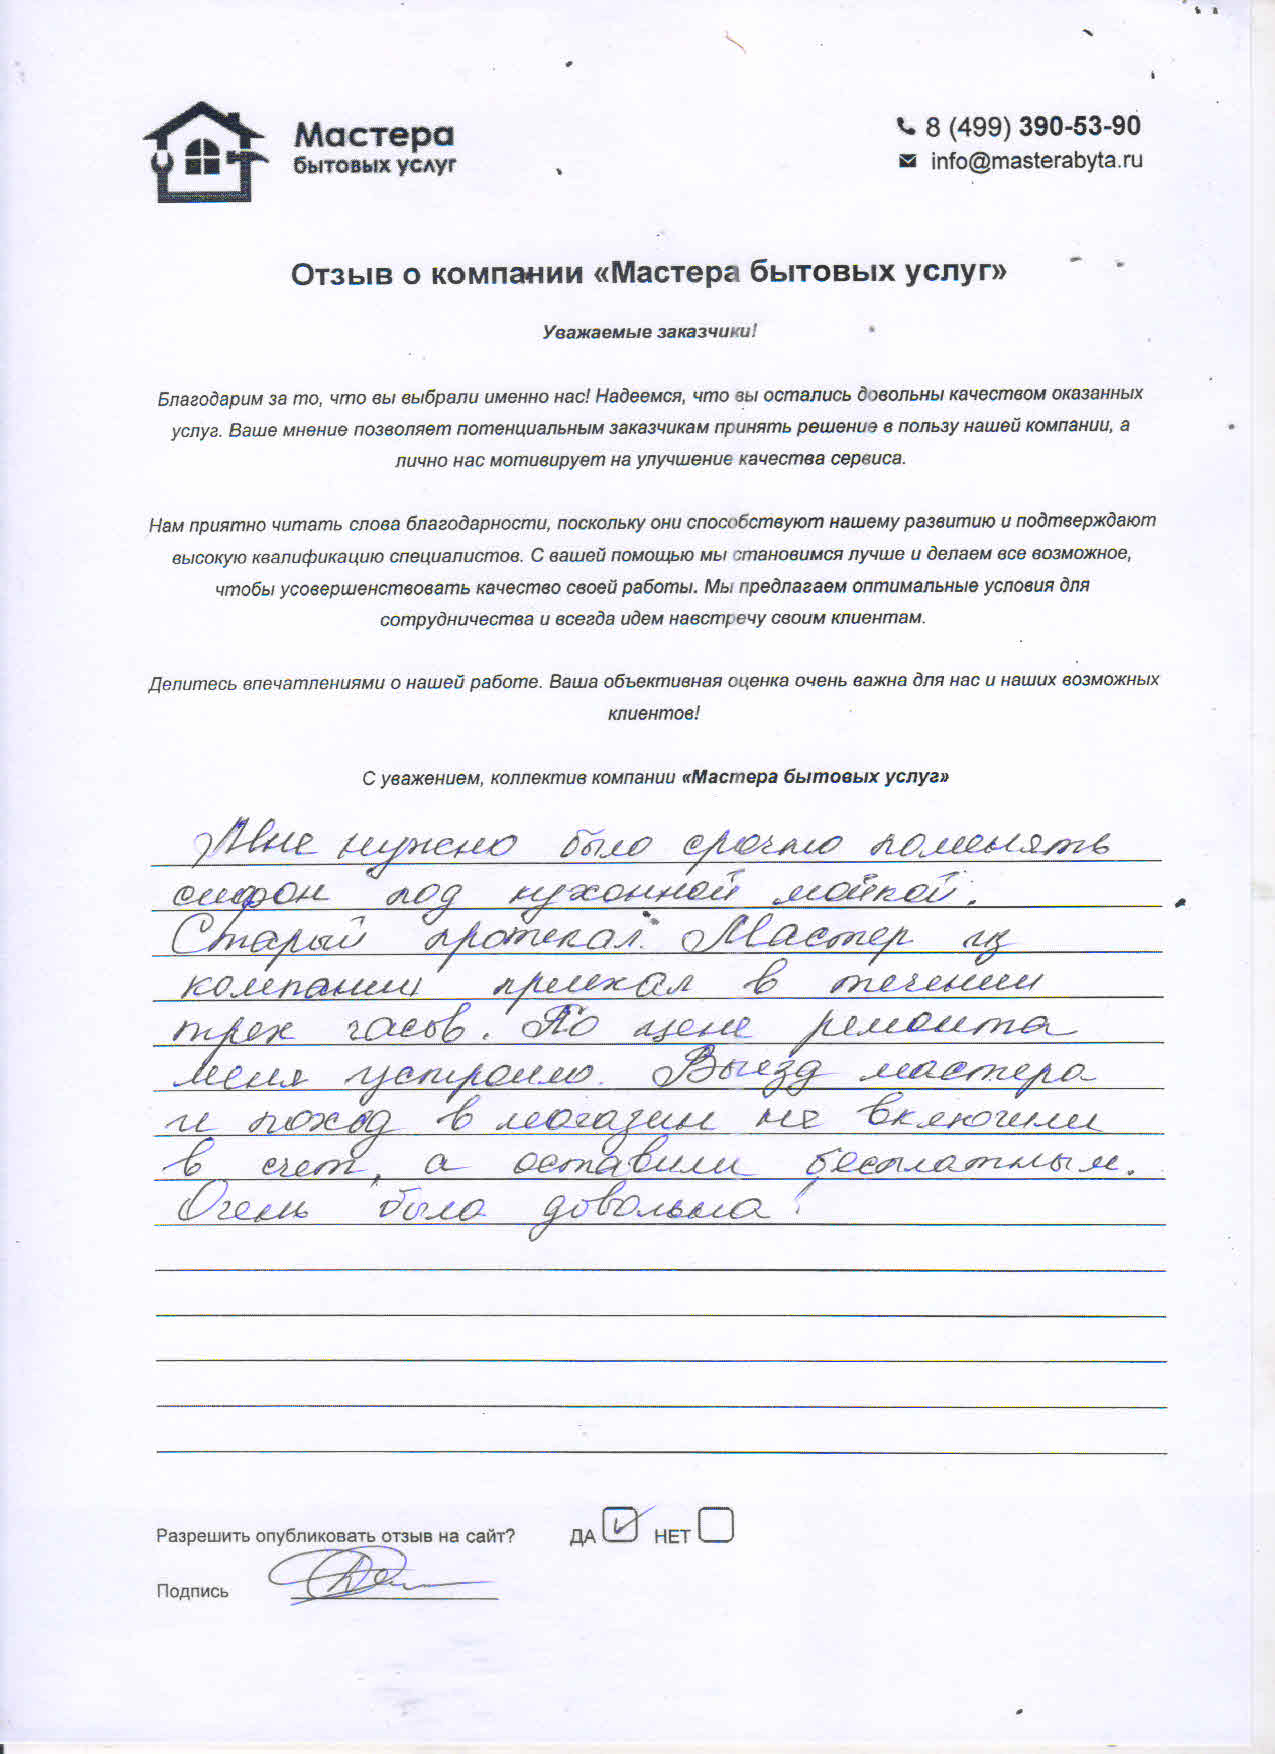 Мастера
бытовых услуг
8 (499) 390-53-90
info@masterabyta.ru
Отзыв о компании «Мастера бытовых услуг»
Уважаемые заказчики!
Благодарим за то, что вы выбрали именно нас! Надеемся, что вы остались довольны качеством оказанных
услуг. Ваше мнение позволяет потенциальным заказчикам принять решение в пользу нашей компании, а
лично нас мотивирует на улучшение качества сервиса.
Нам приятно читать слова благодарности, поскольку они способствуют нашему развитию и подтверждают
высокую квалификацию специалистов. С вашей помощью мы становимся лучше и делаем все возможное,
чтобы усовершенствовать качество своей работы. Мы предлагаем оптимальные условия для
сотрудничества и всегда идем навстречу своим клиентам.
Делитесь впечатлениями о нашей работе. Ваша объективная оценка очень важна для нас и наших возможных
клиентов!
С уважением, коллектив компании «Мастера бытовых услуг»
Мне нужно было срочно поменять
сифон под кухонной мойкой.
Старый протекал. Мастер из
компании приехал в течении
трех часов. По цене ремонта
меня устроило. Выезд мастера
и поход в магазин не включили
в счет, а оставили бесплатным.
Очень была довольна!
Разрешить опубликовать отзыв на сайт? ДА НЕТ
Подпись